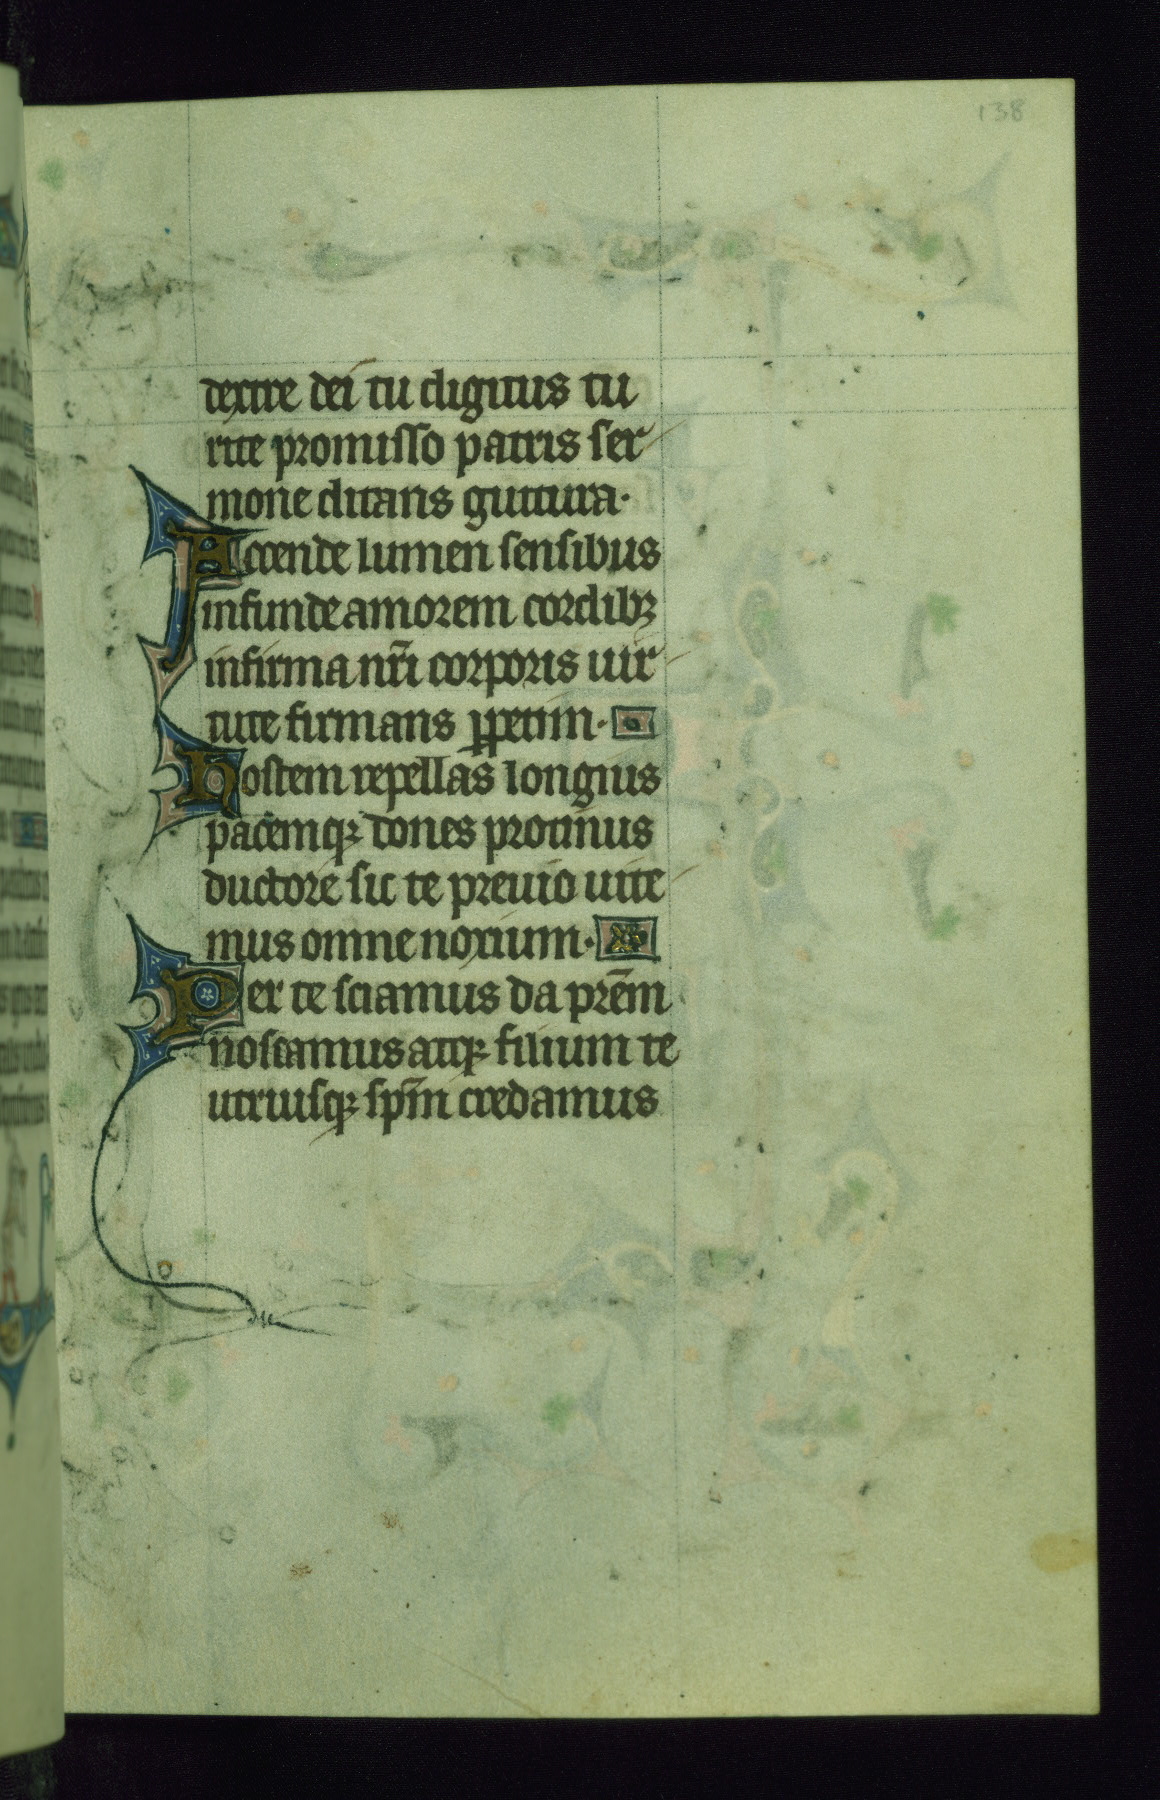 138
dextre dei tu digitus tu
rite promisso patris ser
mone ditans guttura·
Accende lumen sensibus
infunde amorem cordibꝫ
infirma nr̄i corporis uir
tute firmans ꝑpetim·
Hostem repellas longius
pacemqꝫ dones protinus
ductore sic te preuio uite
mus omne noxium·
Per te sciamus da pr̄em
noscamus atqꝫ filium te
utriusqꝫ sp̄m credamus